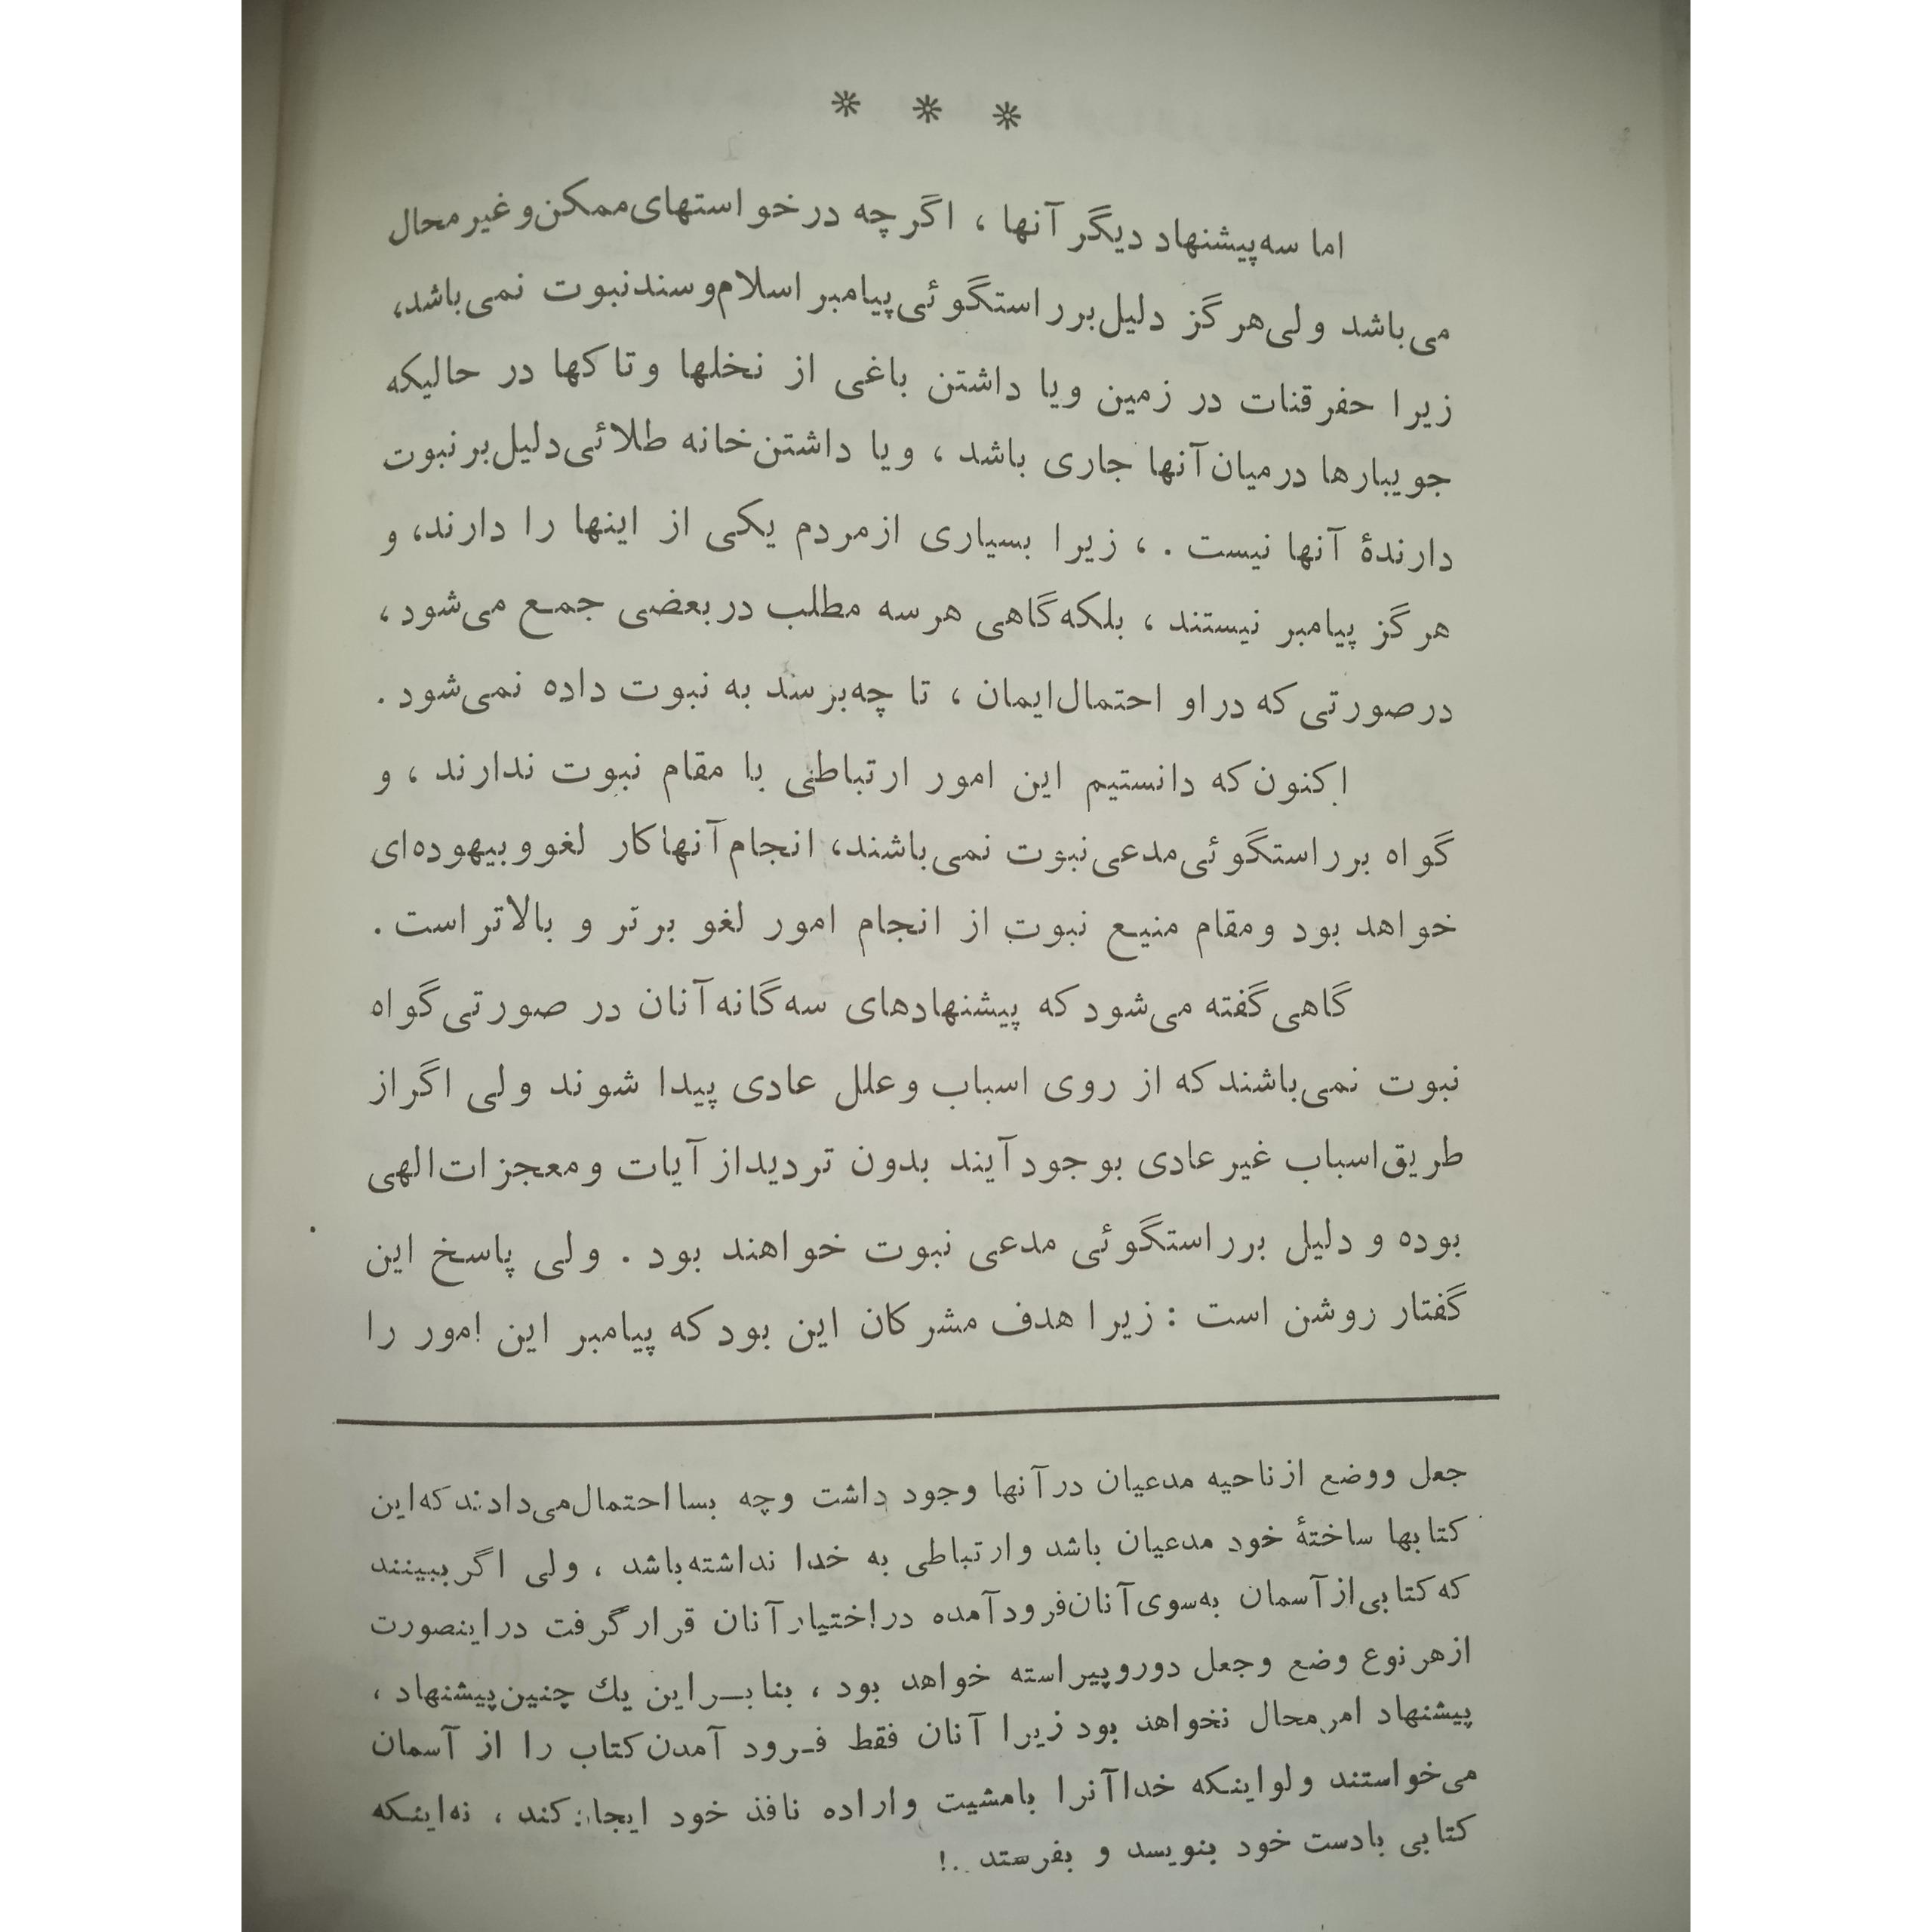 * * *
اما سه‌پیشنهاد دیگر آنها ، اگرچه درخواستهای‌ممکن‌و غیرمحال
می‌باشد ولی‌هرگز دلیل‌بر راستگوئی‌پیامبر اسلام‌و سندنبوت نمی‌باشد،
زیرا حفرقنات در زمین ویا داشتن باغی از نخلها وتاکها در حالیکه
جویبارها درمیان‌آنها جاری باشد ، ویا داشتن‌خانه طلائی‌دلیل‌بر نبوت
دارندهٔ آنها نیست . ، زیرا بسیاری ازمردم یکی از اینها را دارند، و
هرگز پیامبر نیستند ، بلکه‌گاهی هرسه مطلب دربعضی جمع می‌شود ،
درصورتی‌که دراو احتمال‌ایمان ، تا چه‌برسد به نبوت داده نمی‌شود .
اکنون‌که دانستیم این امور ارتباطی با مقام نبوت ندارند ، و
گواه بر راستگوئی‌مدعی‌نبوت نمی‌باشند، انجام‌آنهاکار لغو وبیهوده‌ای
خواهد بود ومقام منیع نبوت از انجام امور لغو برتر و بالاتر است .
گاهی‌گفته می‌شودکه پیشنهادهای سه‌گانه‌آنان در صورتی‌گواه
نبوت نمی‌باشندکه از روی اسباب وعلل عادی پیدا شوند ولی اگراز
طریق‌اسباب غیرعادی بوجودآیند بدون تردیداز آیات ومعجزات‌الهی
بوده و دلیل بر راستگوئی مدعی نبوت خواهند بود . ولی پاسخ این
گفتار روشن است : زیرا هدف مشرکان این بودکه پیامبر این امور را
جعل ووضع ازناحیه مدعیان درآنها وجود داشت وچه بسااحتمال‌می‌دادندکه‌این
کتابها ساختهٔ خود مدعیان باشد وارتباطی به خدا نداشته‌باشد ، ولی اگرببینند
که‌کتابی‌ازآسمان به‌سوی‌آنان‌فرودآمده دراختیارآنان قرارگرفت دراینصورت
ازهرنوع وضع وجعل دوروپیراسته خواهد بود ، بنابـراین یك چنین‌پیشنهاد ،
پیشنهاد امرمحال نخواهد بود زیرا آنان فقط فـرود آمدن‌کتاب را از آسمان
می‌خواستند ولواینکه خداآنرا بامشیت واراده نافذ خود ایجادکند ، نه‌اینکه
کتابی بادست خود بنویسد و بفرستد ..!